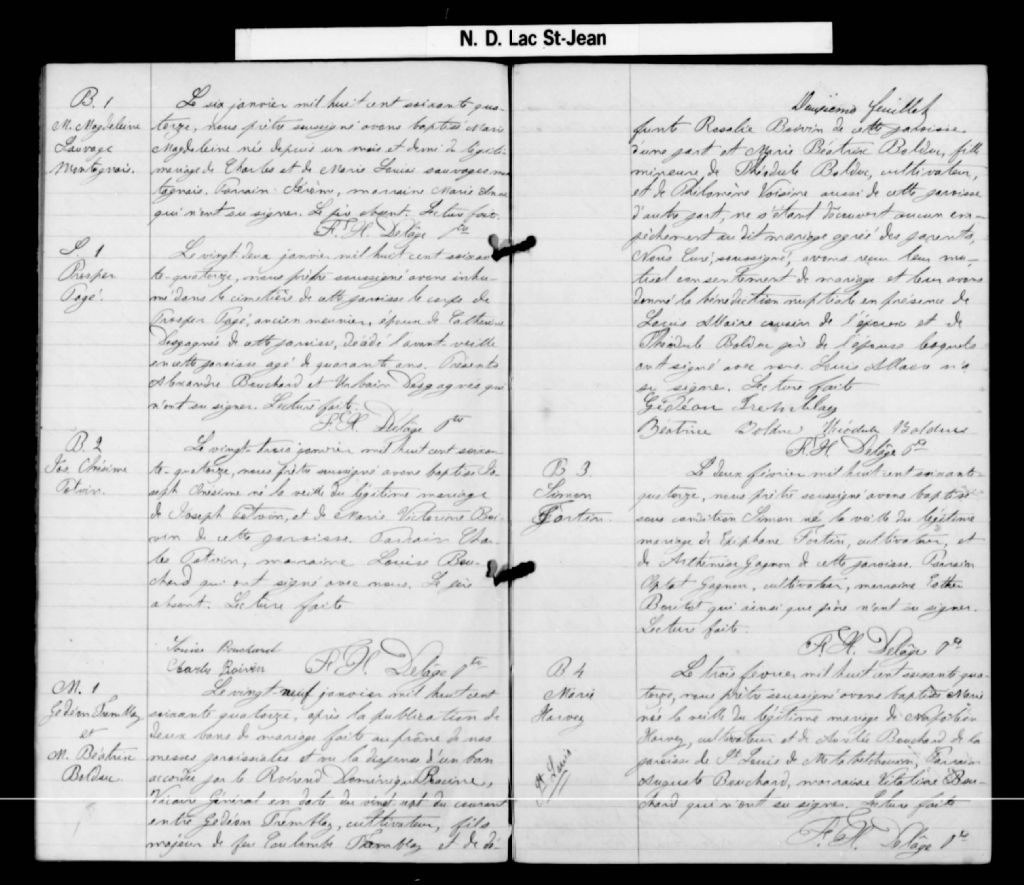 N. D. Lac St-Jean
B. 1
M. Magdeleine
Sauvage
Montagnais.
Le six janvier mil huit cent soixante qua-
torze, nous prêtre soussigné avons baptisé Marie
Magdeleine née depuis un mois et demi de légiti-
mariage de Charles et de Marie Louise sauvages mon
tagnais. Parrain Jérôme, marraine Marie Anne
qui n'ont su signer. Le père absent. Lecture faite.
F. X. Delâge Ptre
S. 1
Prosper
Pagé.
Le vingt deux janvier mil huit cent soixan
te-quatorze, nous prêtre soussigné avons inhu-
mé dans le cimetière de cette paroisse le corps de
Prosper Pagé, ancien meunier, époux de Catherine
Desgagnés de cette paroisse, décédé l'avant veille
en cette paroisse agé de quarante ans. Présents
Alexandre Bouchard et Urbain Desgagnés qui
n'ont su signer. Lecture faite.
F. X. Delâge Ptre
B. 2
Jos Onésime
Potvin.
Le vingt trois janvier mil huit cent soixan-
te-quatorze, nous prêtre soussigné avons baptisé Jo-
seph Onésime né la veille du légitime mariage
de Joseph Potvin, et de Marie Victorine Boi-
vin de cette paroisse. Parrain Char-
les Potvin, marraine Louise Bou-
chard qui ont signé avec nous. Le père
absent. Lecture faite
Louise Bouchard
Charles Boivin F. X. Delâge Ptre
M. 1
Gédéon Tremblay
et
M. Béatrice
Bolduc.
Le vingt-neuf janvier mil huit cent
soixante quatorze, après la publication de
deux bans de mariage faite au prône de nos
messes paroissiales et vu la dispense d'un ban
accordée par le Révérend Dominique Racine,
Vicaire Général en date du vingt sept du courant
entre Gédéon Tremblay, cultivateur, fils
majeur de feu Coulombe Tremblay et de dé-
Deuxième feuillet
funte Rosalie Boivin de cette paroisse
d'une part et Marie Béatrice Bolduc, fille
mineure de Théodule Bolduc, cultivateur,
et de Philomène Voisine aussi de cette paroisse
d'autre part, ne s'étant découvert aucun em-
pêchement au dit mariage agréé des parents,
Nous Curé, soussigné, avons reçu leur mu-
tuel consentement de mariage et leur avons
donné la bénédiction nuptiale en présence de
Louis Allaire cousin de l'époux et de
Théodule Bolduc père de l'épouse lesquels
ont signé avec nous. Louis Allaire n'a
su signé. Lecture faite
Gédéon Tremblay
Béatrice Bolduc Théodule Bolduc
F. X. Delâge Ptre
B 3
Simon
Fortin.
Le deux février mil huit cent soixante-
quatorze, nous prêtre soussigné avons baptisé
sous condition Simon né la veille du légitime
mariage de Epiphane Fortin, cultivateur, et
de Arthémise Gagnon de cette paroisse. Parrain
Optat Gagnon, cultivateur, marraine Esther
Boutot qui ainsi que père n'ont su signer.
Lecture faite.
F. X. Delâge Ptre
B 4
Marie
Harvey
St Louis
Le trois février mil huit cent soixante qua-
torze, nous prêtre soussigné avons baptisé Marie
née la veille du légitime mariage de Napoléon
Harvey, cultivateur et de Aurélie Bouchard de la
paroisse de St Louis de Métabetchouan, Parrain
Auguste Bouchard, marraine Vitaline Bou-
chard qui n'ont su signer. Lecture faite
F. X. Delâge Ptre